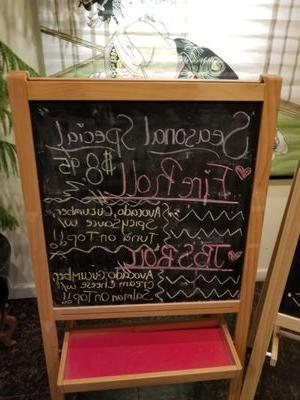 Seasonal Special
$8.95
Fire Roll
Avocado, Cucumber
Spicy Sauce w/
Tuna on Top!!
JB'S Roll
Avocado Cucumber
Cream Cheese w/
Salmon on Top!!